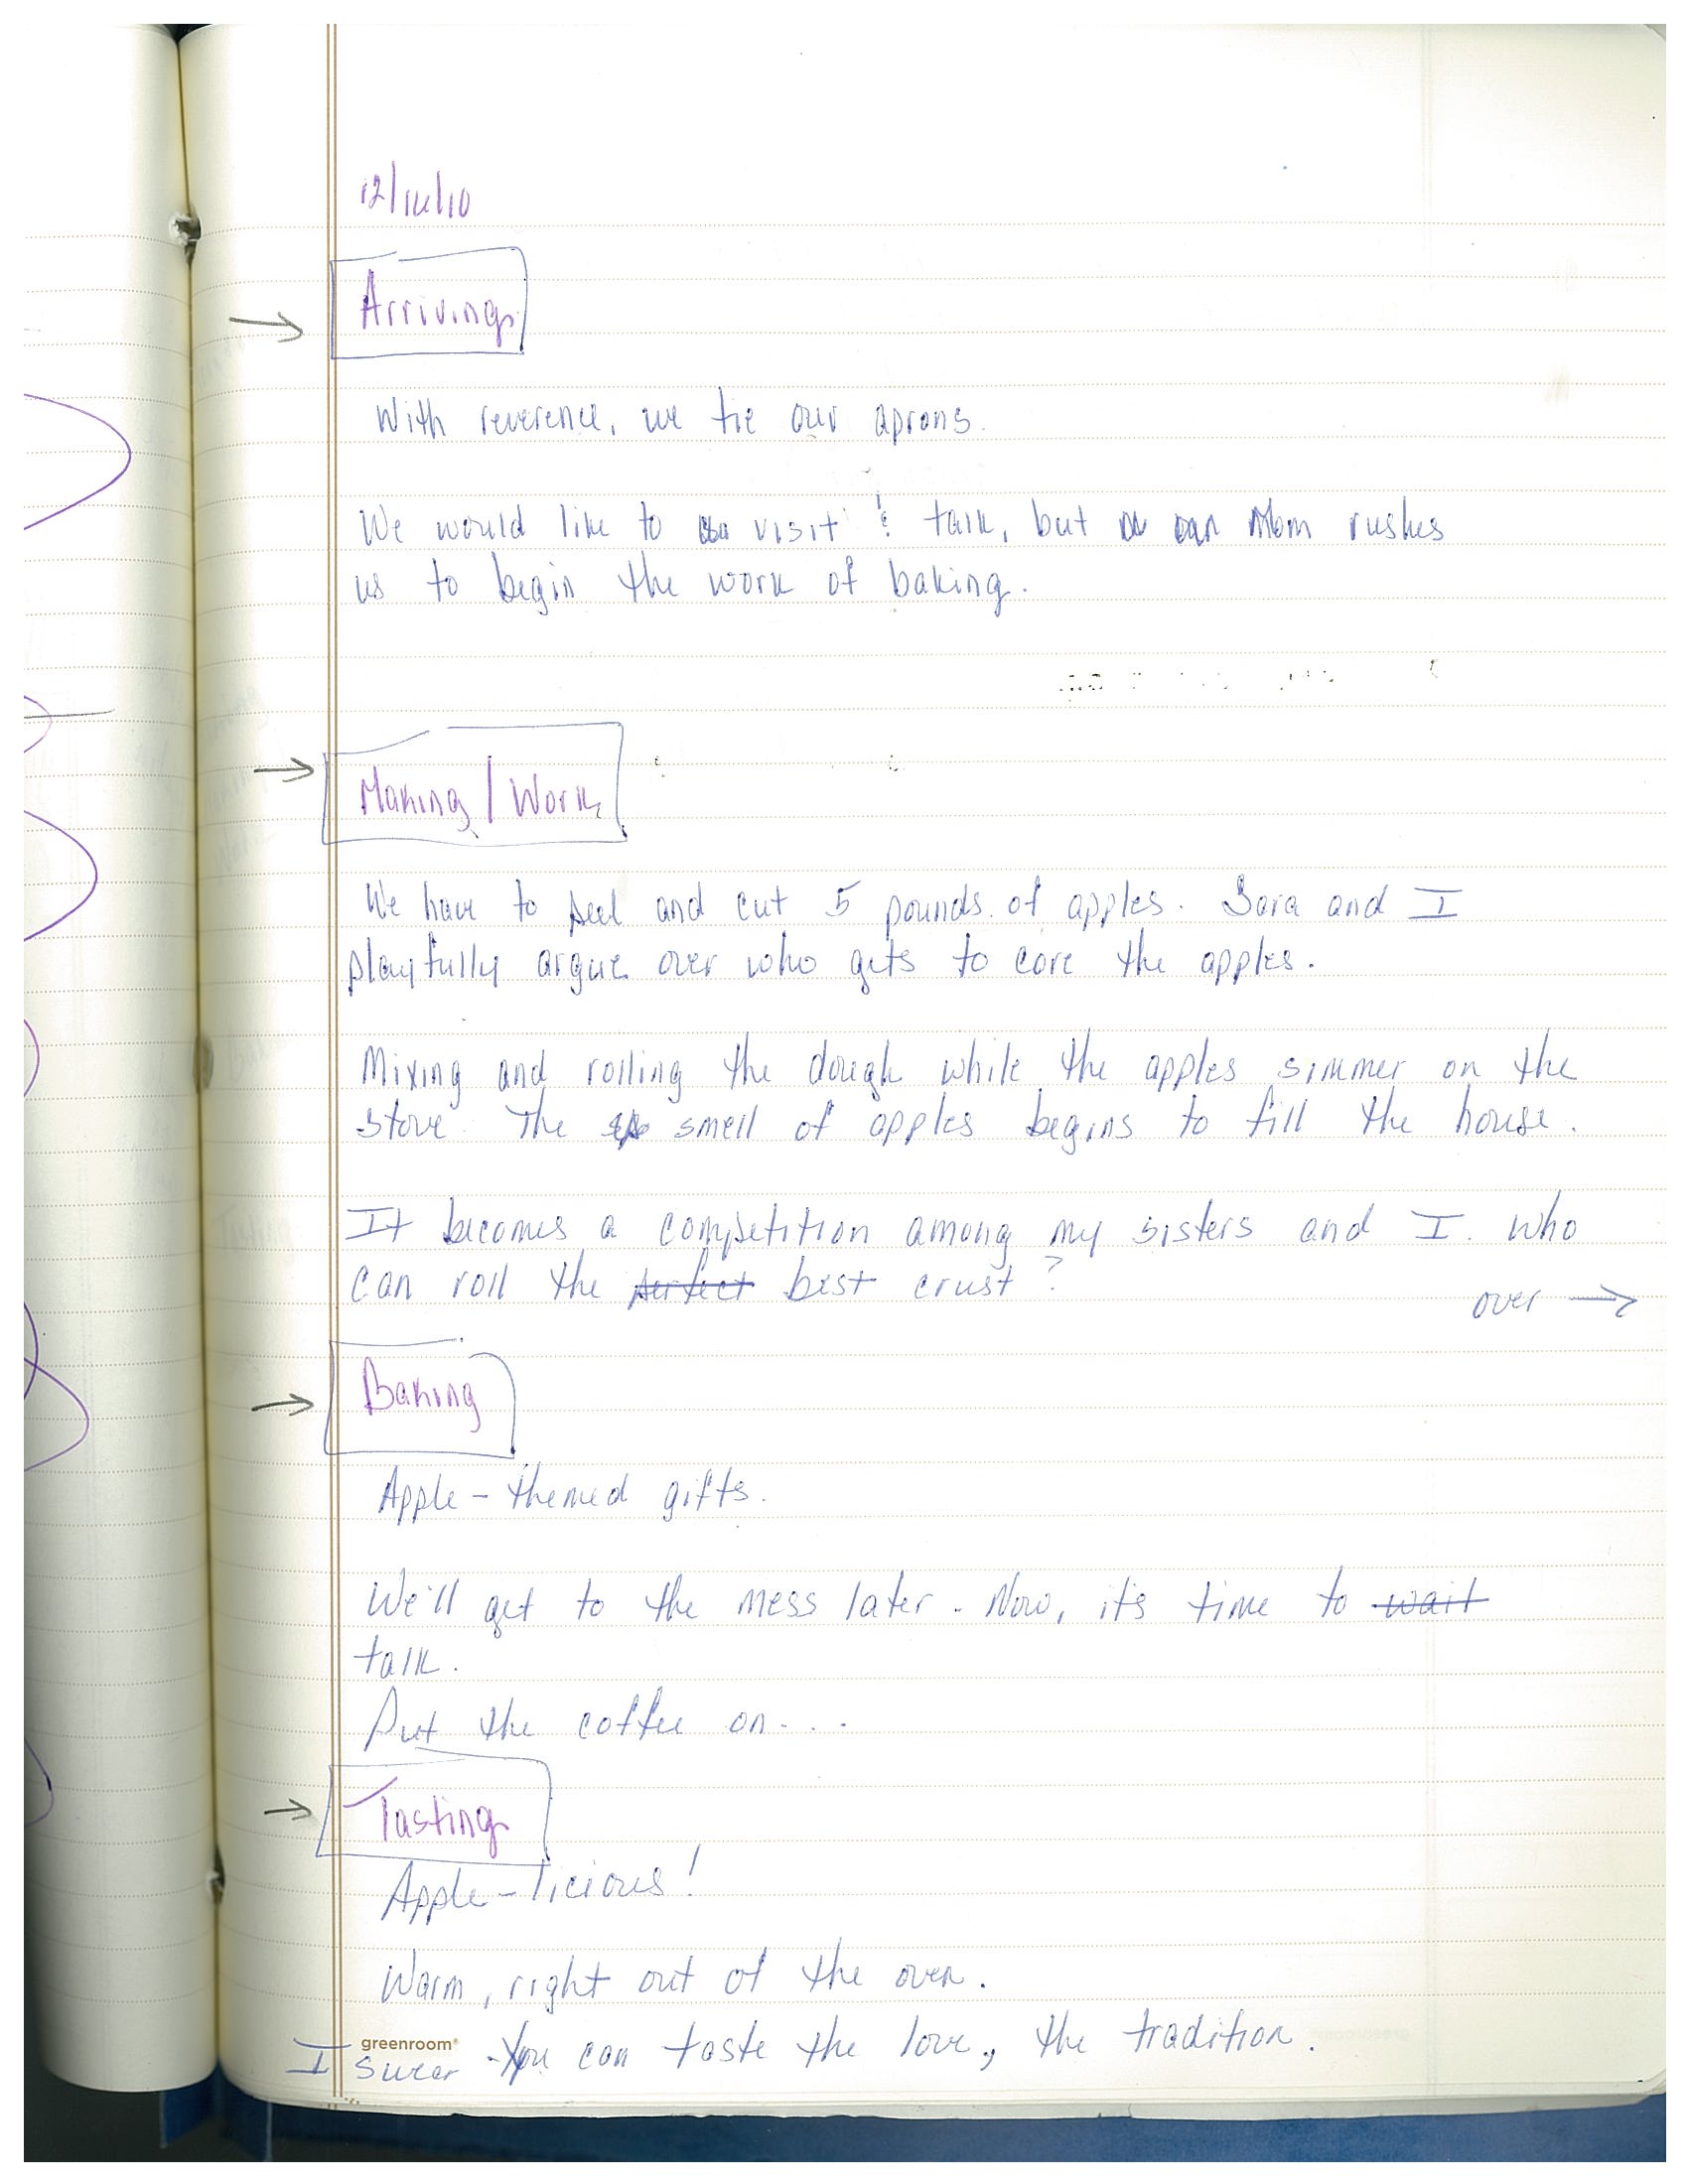 Arriving
With reverence, we tie our aprons.
We would like to visit & talk, but our Mom rushes
us to begin the work of baking.
Making / Work
We have to peel and cut 5 pounds of apples. Sara and I
playfully argue over who gets to core the apples.
Mixing and rolling the dough while the apples simmer on the
stove. The smell of apples begins to fill the house.
It becomes a competition among my sisters and I. Who
can roll the perfect best crust?
over →
Baking
Apple-themed gifts.
We'll get to the mess later. Now, it's time to wait
talk.
Put the coffee on...
Tasting
Apple-licious!
Warm, right out of the oven.
greenroom®
I swear you can taste the love, the tradition.